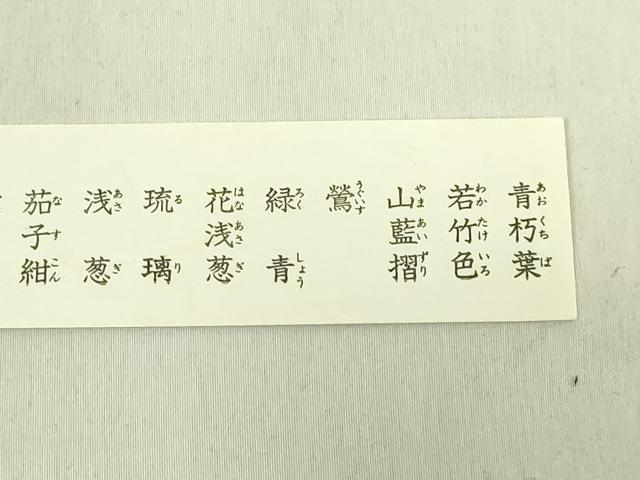 青朽葉 あおくちば
若竹色 わかたけいろ
山藍摺 やまあいずり
鶯 うぐいす
緑青 ろくしょう
花浅葱 はなあさぎ
琉璃 るり
浅葱 あさぎ
茄子紺 なすこん